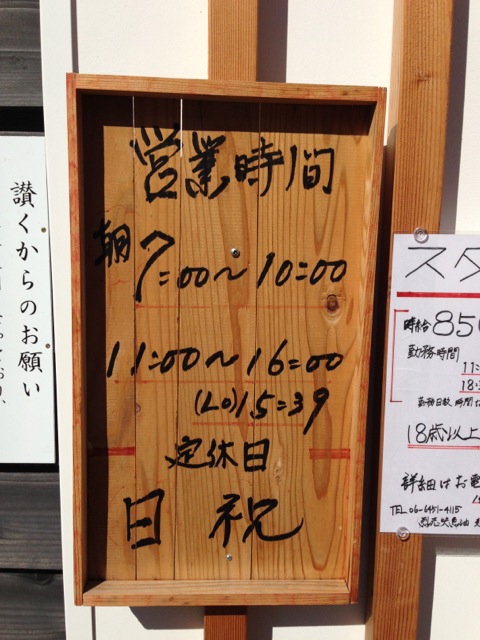 讃くからのお願い
営業時間
朝 7:00〜10:00
11:00〜16:00
(LO)15=39
定休日
日 祝
スタ
時給850
勤務時間
11:
18:3
18歳以上
詳細はお電
TEL 06-6451-4115